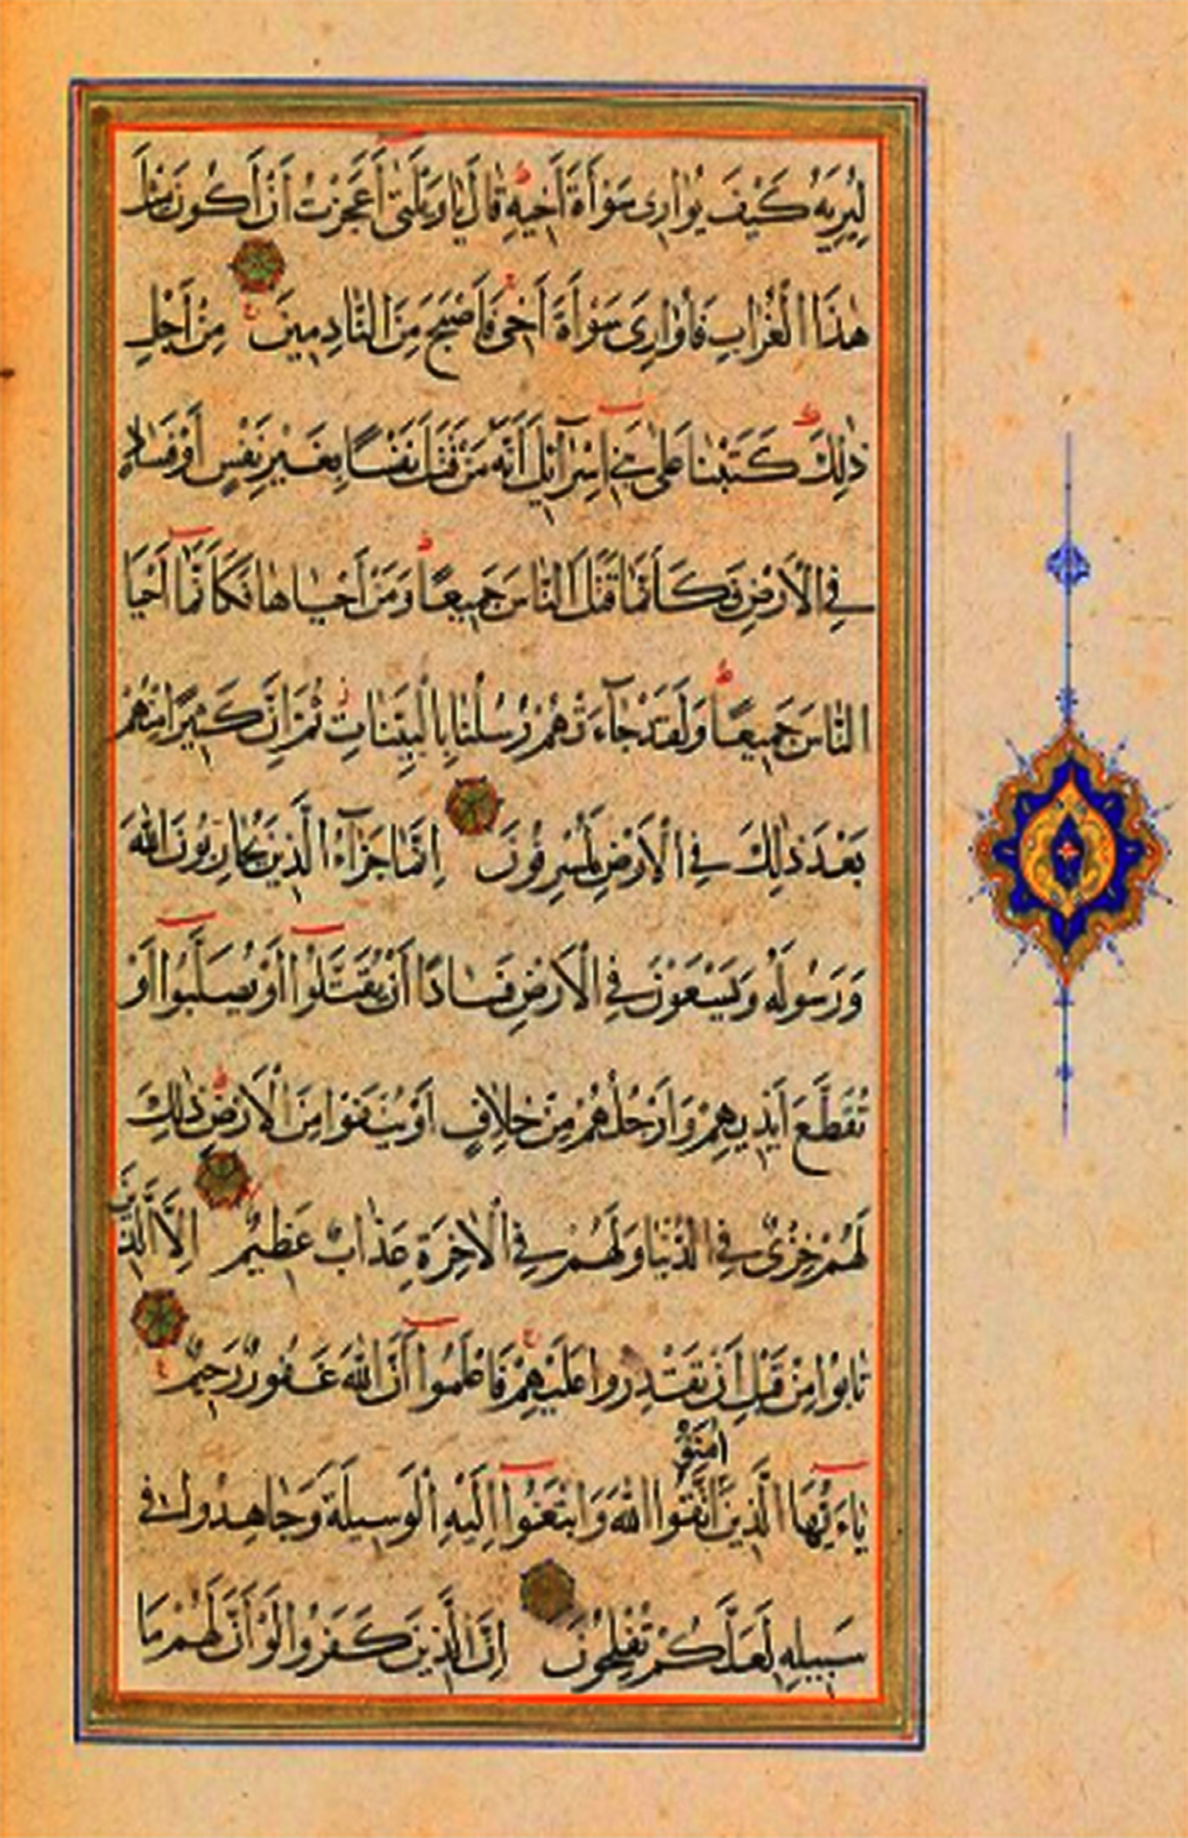 لِيُرِيَهُ كَيْفَ يُوَارِى سَوْأَةَ أَخِيهِ قَالَ يَا وَيْلَتَىٰ أَعَجَزْتُ أَنْ أَكُونَ مِثْلَ
هٰذَا الْغُرَابِ فَأُوَارِىَ سَوْأَةَ أَخِى فَأَصْبَحَ مِنَ النَّادِمِينَ مِنْ أَجْلِ
ذٰلِكَ كَتَبْنَا عَلَىٰ بَنِى إِسْرَآئِلَ أَنَّهُ مَنْ قَتَلَ نَفْسًا بِغَيْرِ نَفْسٍ أَوْ فَسَادٍ
فِى الْأَرْضِ فَكَأَنَّمَا قَتَلَ النَّاسَ جَمِيعًا وَمَنْ أَحْيَاهَا فَكَأَنَّمَا أَحْيَا
النَّاسَ جَمِيعًا وَلَقَدْ جَآءَتْهُمْ رُسُلُنَا بِالْبَيِّنَاتِ ثُمَّ إِنَّ كَثِيرًا مِنْهُمْ
بَعْدَ ذٰلِكَ فِى الْأَرْضِ لَمُسْرِفُونَ إِنَّمَا جَزَآءُ الَّذِينَ يُحَارِبُونَ اللّٰهَ
وَرَسُولَهُ وَيَسْعَوْنَ فِى الْأَرْضِ فَسَادًا أَنْ يُقَتَّلُوا أَوْ يُصَلَّبُوا أَوْ
تُقَطَّعَ أَيْدِيهِمْ وَأَرْجُلُهُمْ مِنْ خِلَافٍ أَوْ يُنْفَوْا مِنَ الْأَرْضِ ذٰلِكَ
لَهُمْ خِزْىٌ فِى الدُّنْيَا وَلَهُمْ فِى الْآخِرَةِ عَذَابٌ عَظِيمٌ إِلَّا الَّذِينَ
تَابُوا مِنْ قَبْلِ أَنْ تَقْدِرُوا عَلَيْهِمْ فَاعْلَمُوا أَنَّ اللّٰهَ غَفُورٌ رَحِيمٌ
اٰمَنُوا
يَاءَيُّهَا الَّذِينَ اتَّقُوا اللّٰهَ وَابْتَغُوا إِلَيْهِ الْوَسِيلَةَ وَجَاهِدُوا فِى
سَبِيلِهِ لَعَلَّكُمْ تُفْلِحُونَ إِنَّ الَّذِينَ كَفَرُوا لَوْ أَنَّ لَهُمْ مَا